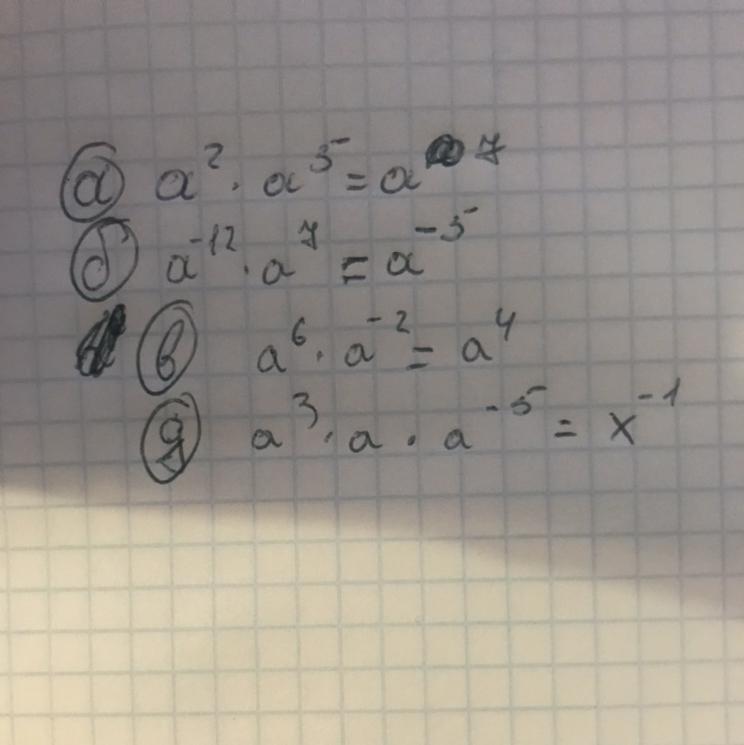 а) a² · a⁵ = a⁷
б) a⁻¹² · a⁷ = a⁻⁵
в) a⁶ · a⁻² = a⁴
д) a³ · a · a⁻⁵ = x⁻¹